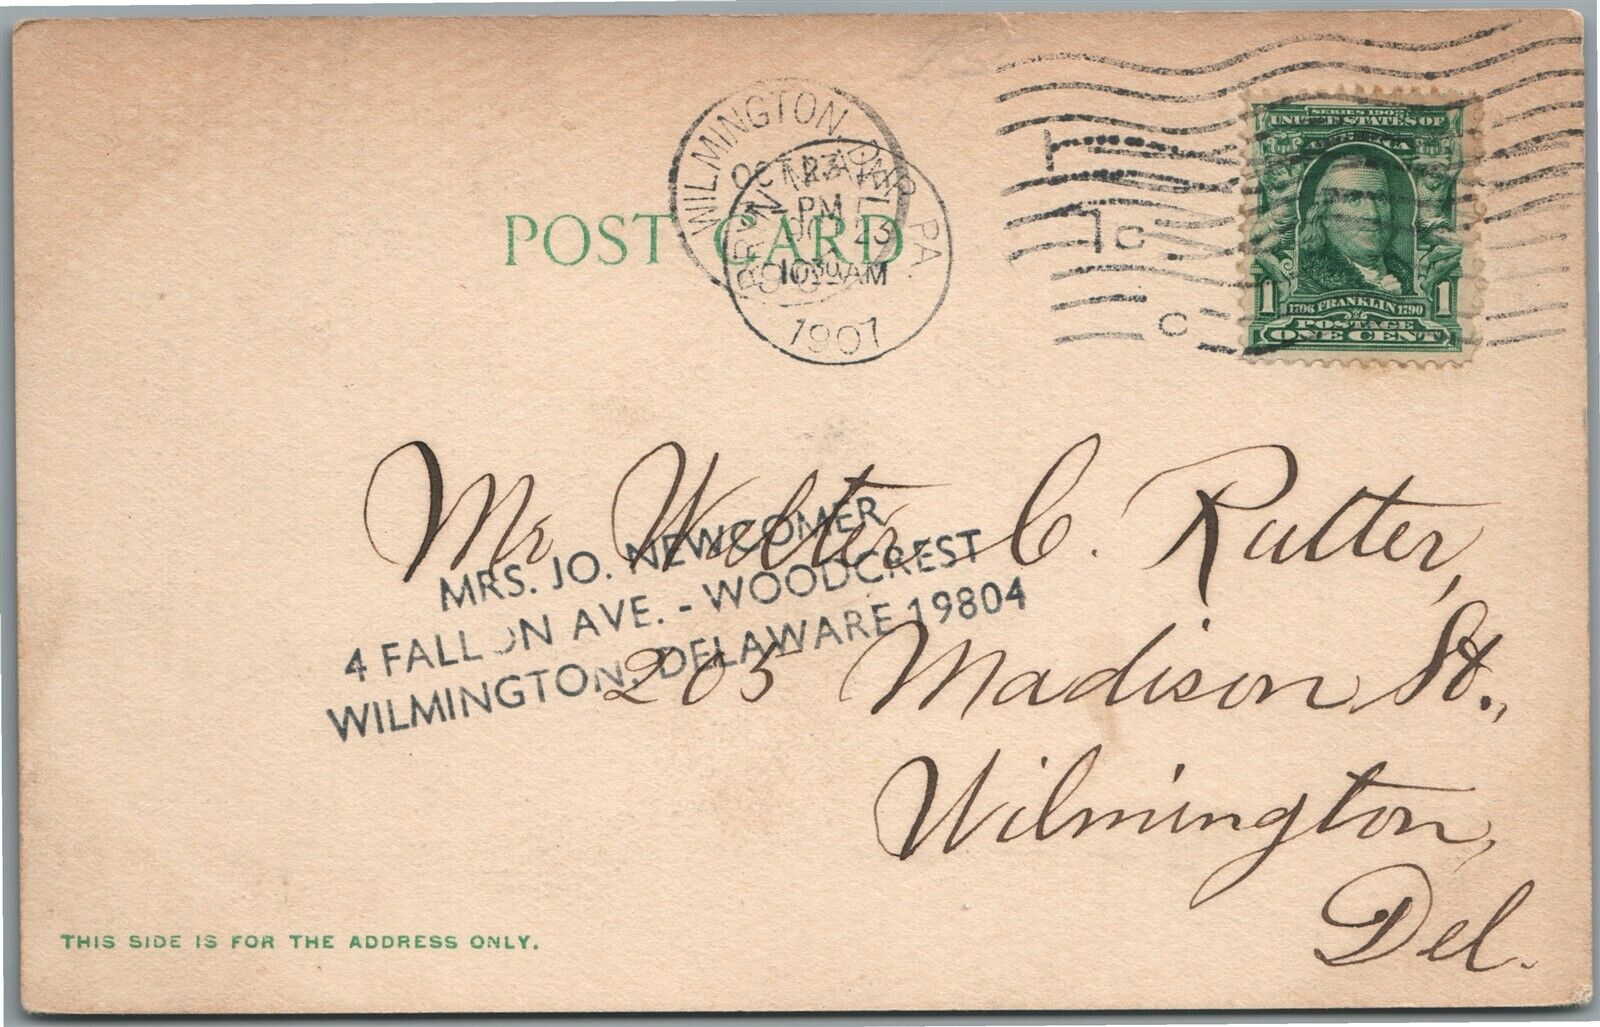 SERIES 1902
UNITED STATES OF
AMERICA
1 1706 FRANKLIN 1790 1
POSTAGE
ONE CENT
WILMINGTON, DEL.
OCT 23
PM
BRYN MAWR, PA.
OCT 23
10 30 AM
1907
POST CARD
Mr Walter C. Rutter,
205 Madison St.,
Wilmington,
Del.
MRS. JO. NEWCOMER
4 FALLON AVE. - WOODCREST
WILMINGTON, DELAWARE 19804
THIS SIDE IS FOR THE ADDRESS ONLY.